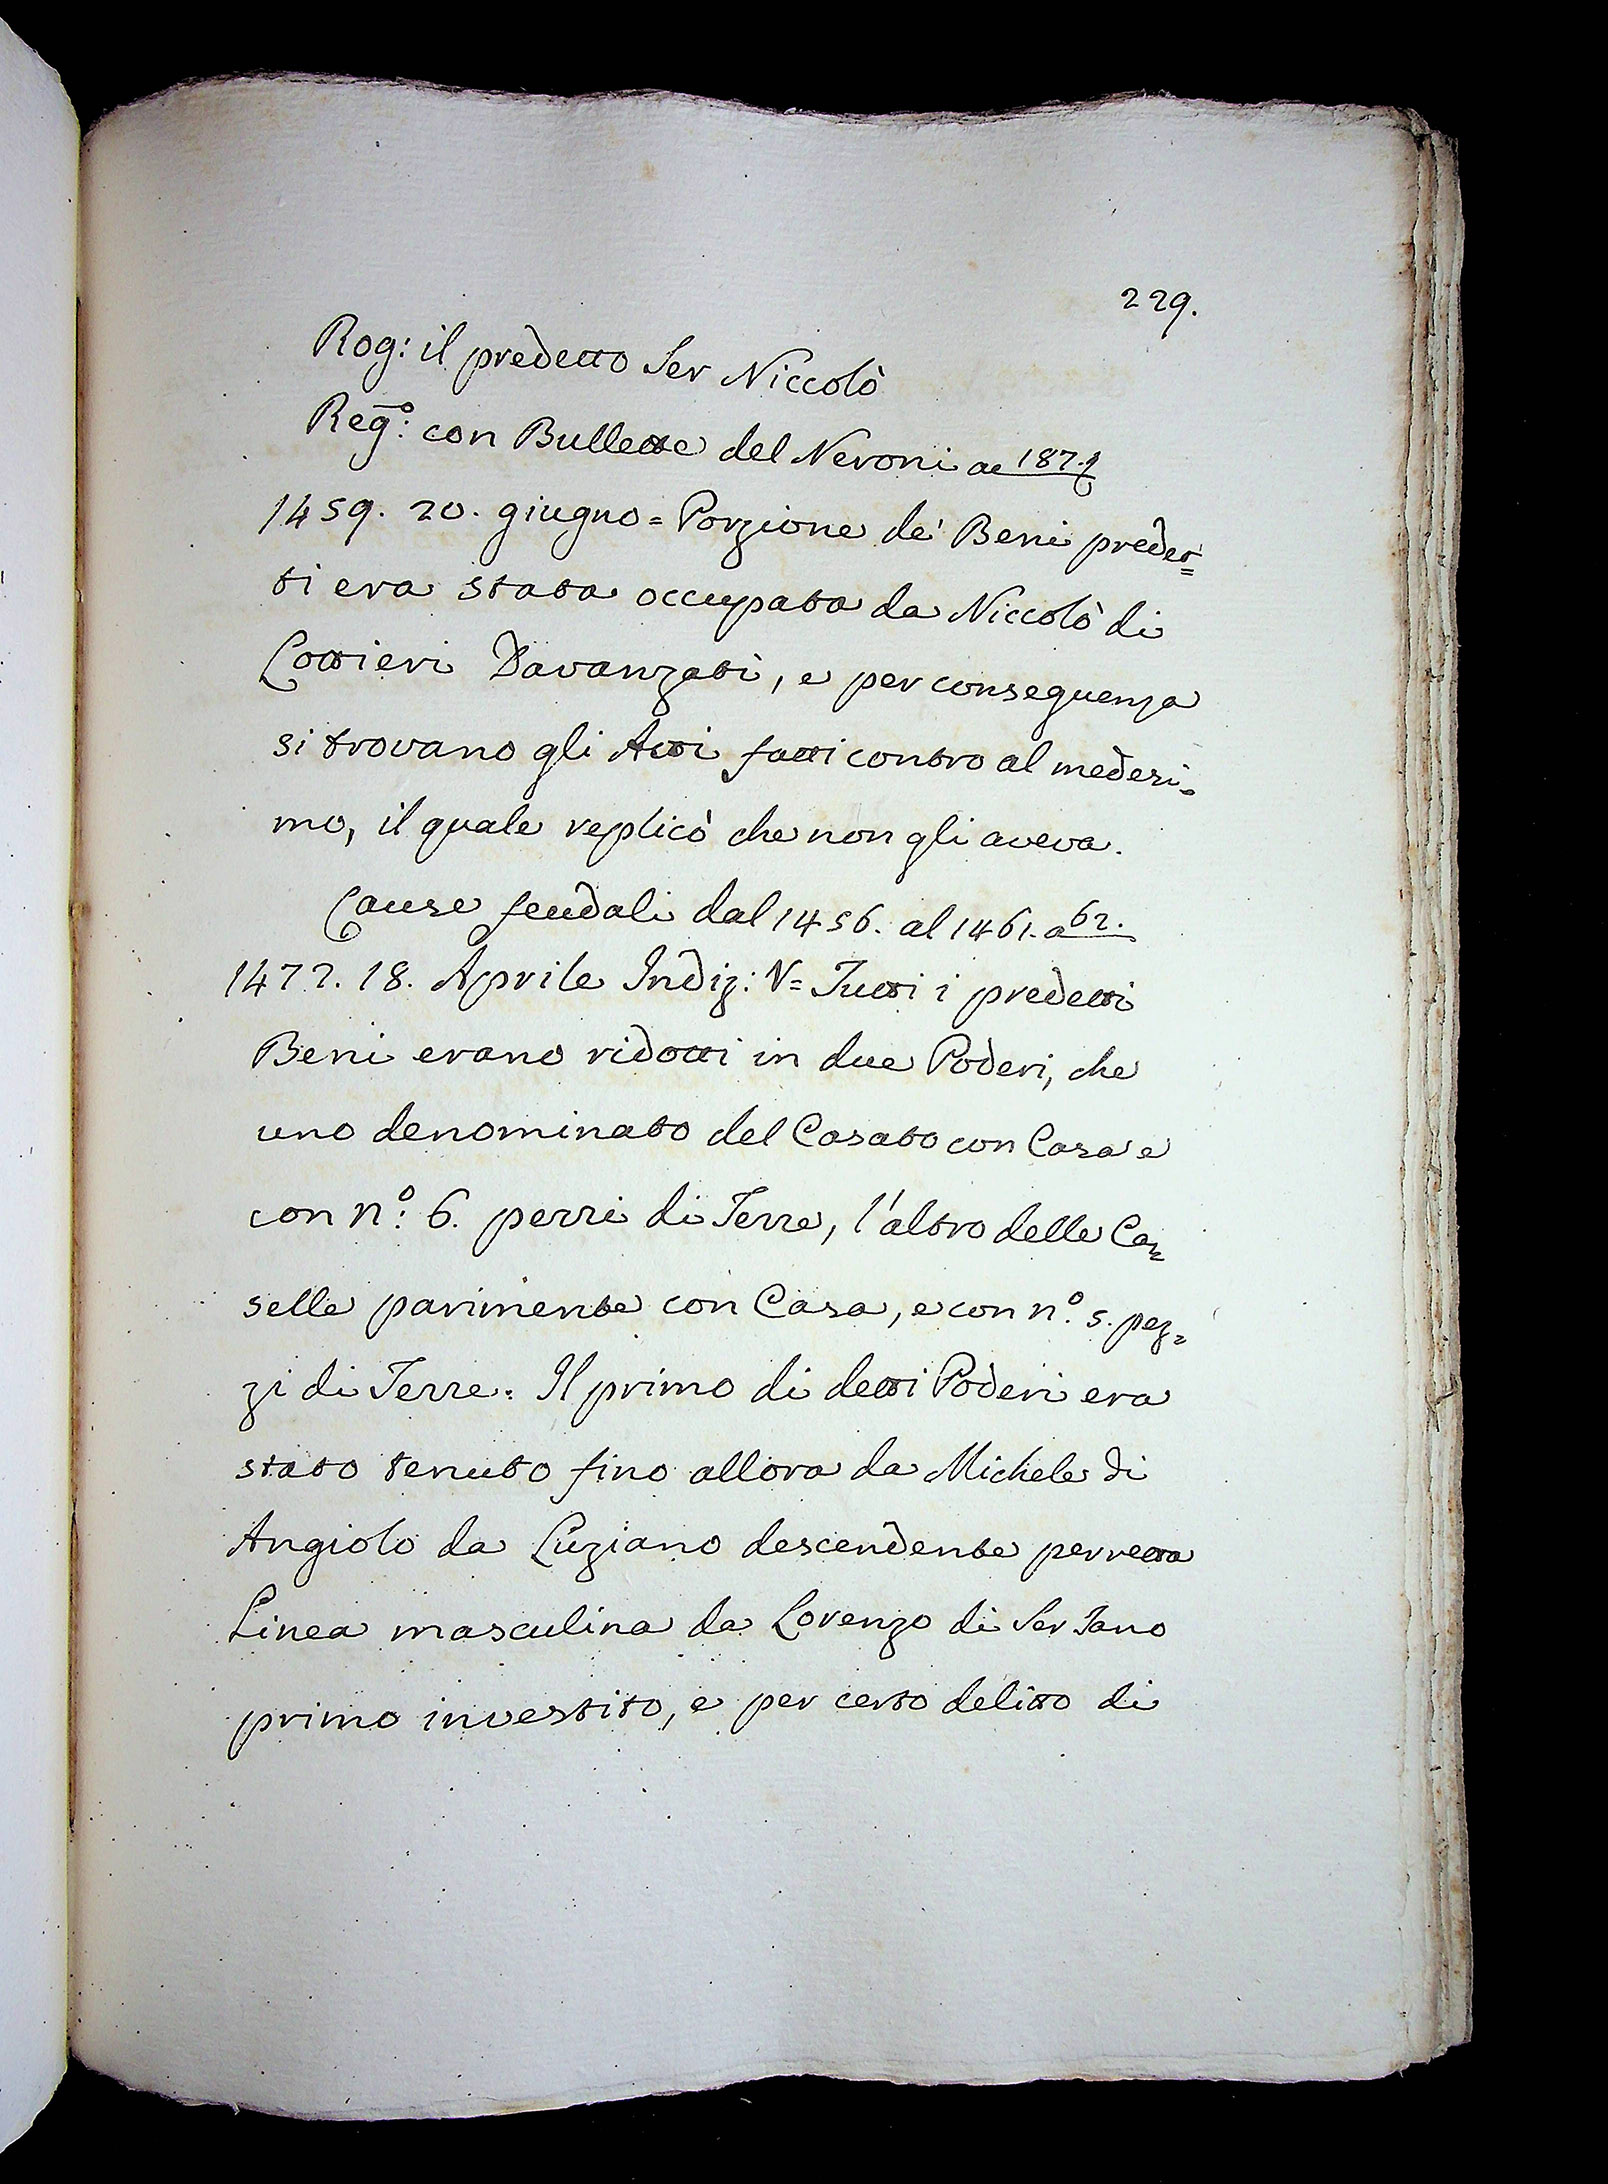 229.
Rog: il predetto Ser Niccolò
Reg.º: con Bullette del Neroni a 187.
1459. 20. giugno = Porzione de' Beni predet=
ti era stata occupata da Niccolò di
Lottieri Davanzati, e per conseguenza
si trovano gli Atti fatti contro al medesi=
mo, il quale replicò che non gli aveva.
Cause feudali dal 1456. al 1461. a 62.
1472. 18. Aprile Indiz: V = Tutti i predetti
Beni erano ridotti in due Poderi, che
uno denominato del Casato con Casa e
con n.º: 6. pezzi di Terre, l'altro delle Ca=
selle parimente con Casa, e con n.º 5. pez=
zi di Terre: Il primo di detti Poderi era
stato tenuto fino allora da Michele di
Angiolo da Luziano descendente per retta
Linea masculina da Lorenzo di Ser Iano
primo investito, e per certo delitto di